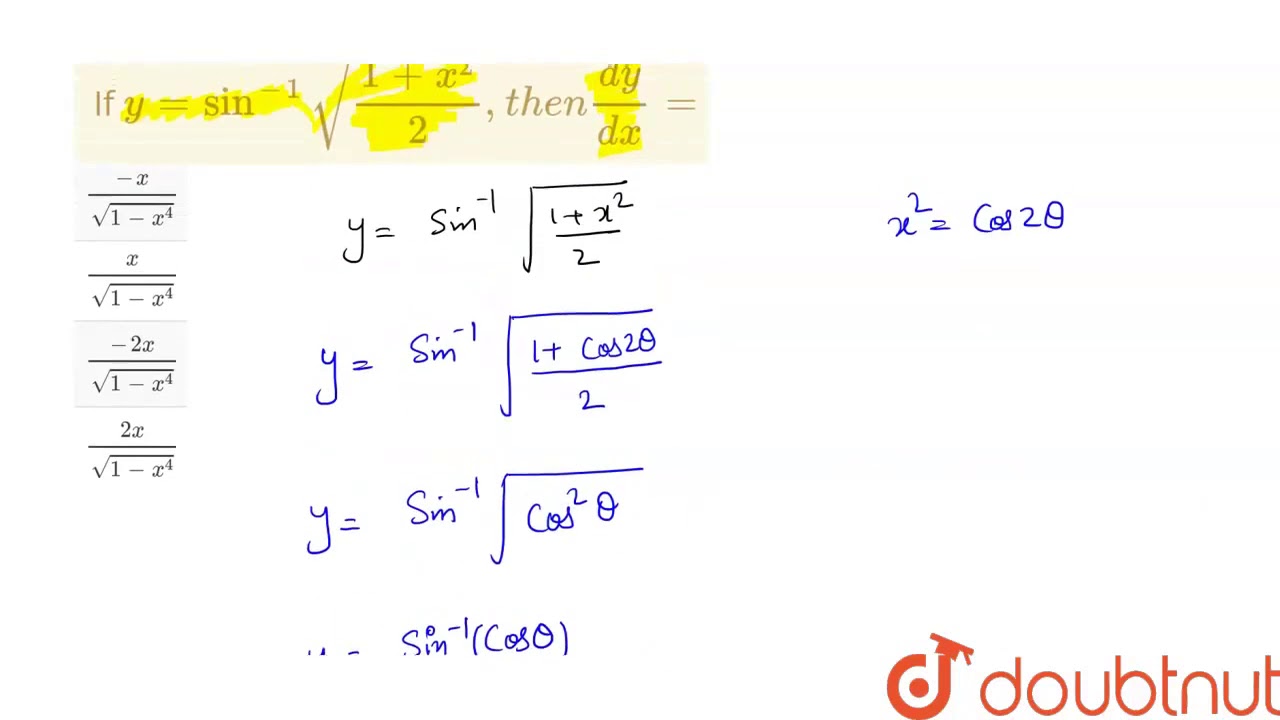 If y = sin⁻¹ √((1 + x²)/2), then dy/dx =
-x/√(1 - x⁴)
x/√(1 - x⁴)
-2x/√(1 - x⁴)
2x/√(1 - x⁴)
y = Sin⁻¹ √((1+ x²)/2)
x² = Cos2θ
y = Sin⁻¹ √((1+ Cos2θ)/2)
y = Sin⁻¹ √(Cos²θ)
y = Sin⁻¹(Cosθ)
doubtnut